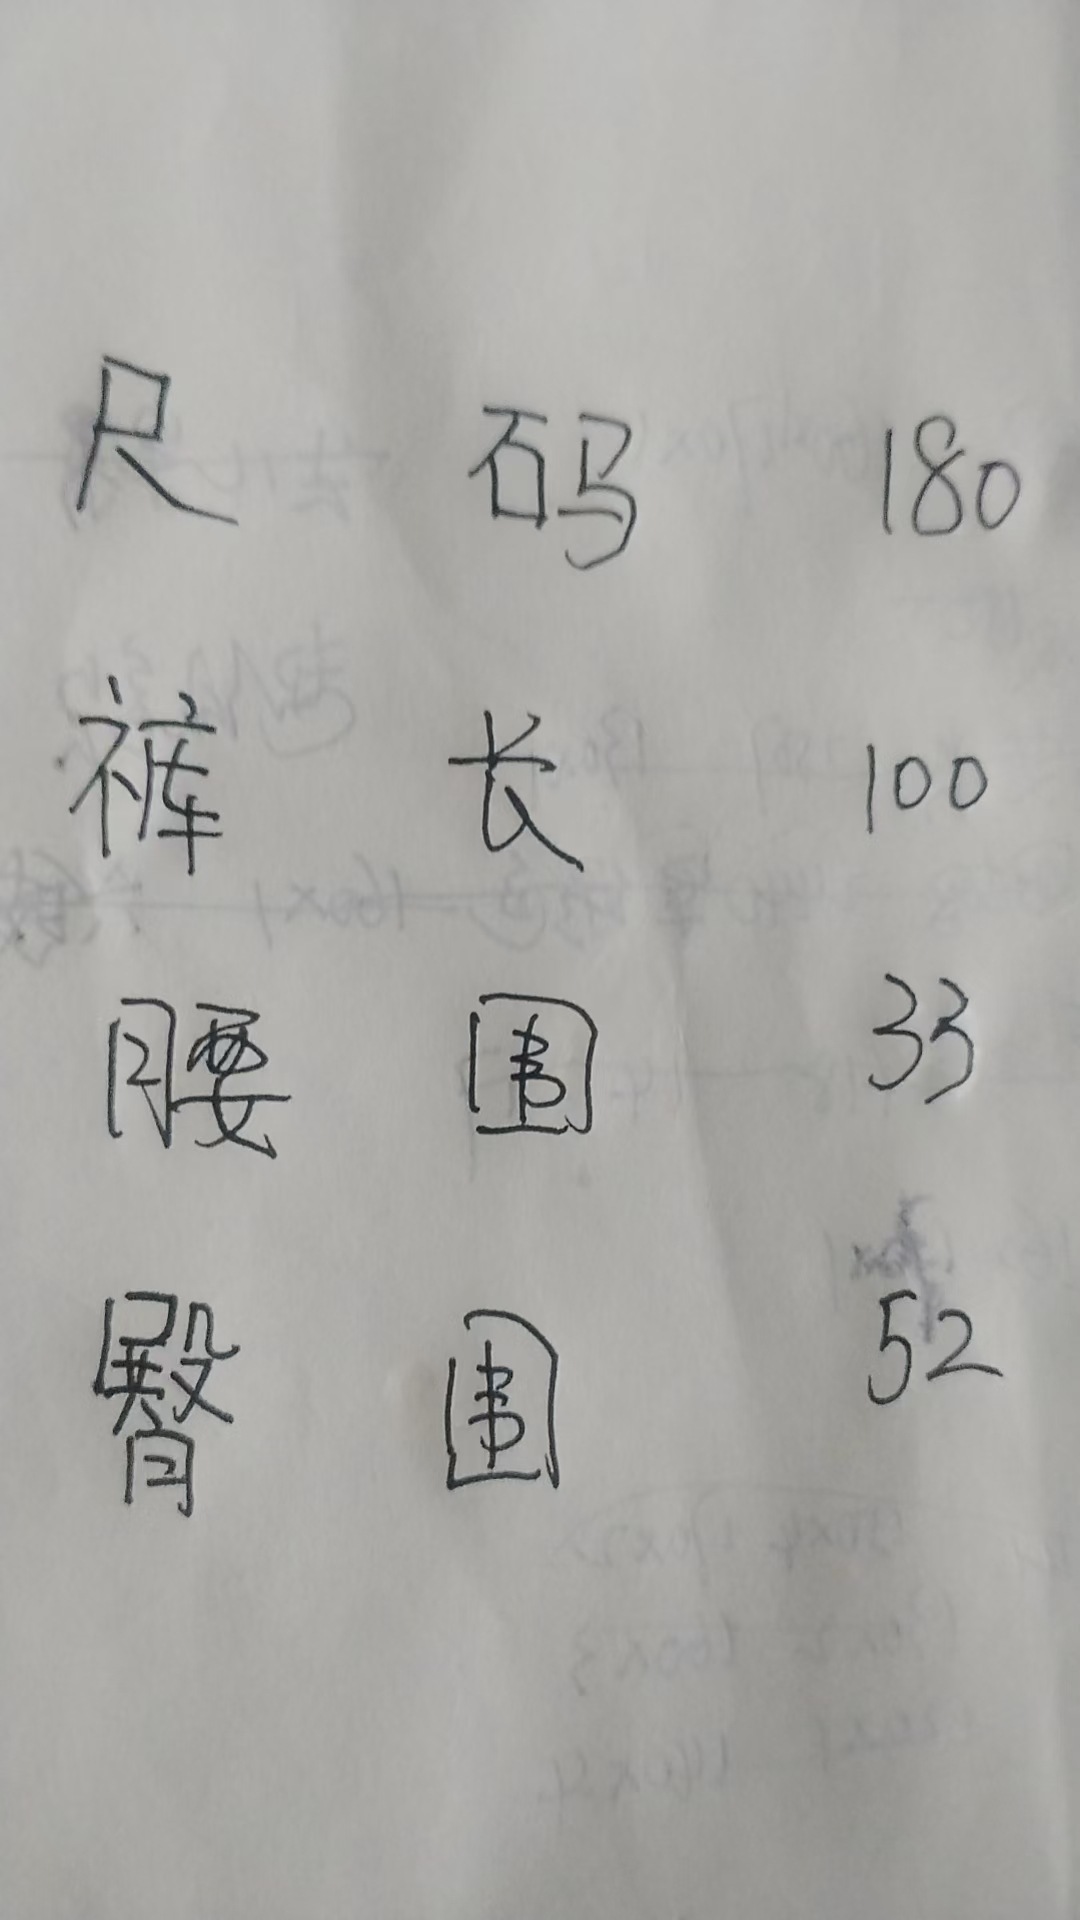 尺 码 180
裤 长 100
腰 围 33
臀 围 52